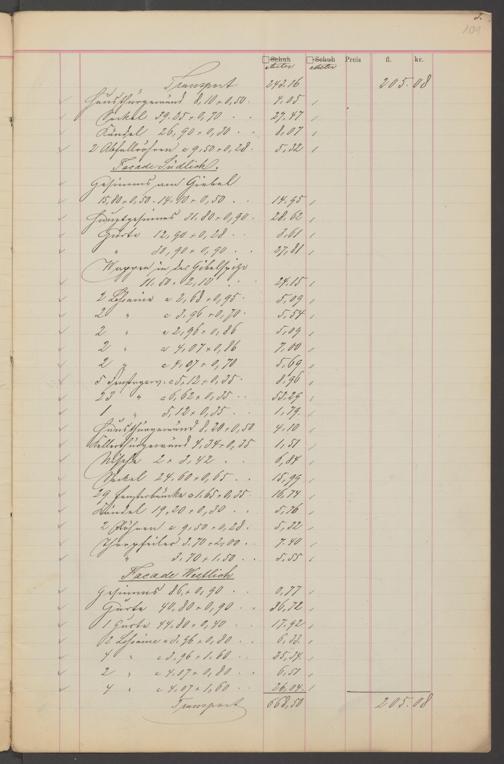 3.
109
□ Schuh □ Schuh Preis fl. kr.
Meter Meter
Transport 242.16 205.08
Hausthürgewänd 8,10 × 0,50 4.05
Sockel 39.05 × 0,70 27,47
Kändel 26,90 × 0,30 8.07
2 Abfallröhren a 9,50 × 0,28 5,32
Facade Südlich.
Gesimms am Giebel
15,80 × 0,50 14,95
Hauptgesimms 31.80 × 0,90 28.62
Gurte 12,90 × 0,28 3.61
" 30,90 × 0,90 27,81
Wappen in der Giebelspize
11.50 × 2,10 24.15
2 Lesseine a 2,68 × 0,95 5,09
2 " a 3,96 × 0,70 5,54
2 " a 2,96 × 0,86 5,09
2 " a 4,07 × 0,86 7,00
2 " a 4,07 × 0,70 5,69
5 a 5,12 × 0,35 8,96
23 " a 6,62 × 0,35 53,29
1 " 5,12 × 0,35 1,79
Hausthürgewänd 8,20 × 0,50 4,10
Kellerthürgewänd 4,34 × 0,35 1,51
2 × 3,42 6,84
Sockel 24.60 × 0,65 15,99
29 Fensterbänke a 1.65 × 0,35 16,74
Kändel 19,20 × 0,30 5,76
2 Röhren a 9,50 × 0,28 5,32
Thorpfeiler 3.70 × 2,00 7.40
" 3.70 × 1.50 5.55
Facade Westlich
Gesimms 0,77
Gurte 40,80 × 0,90 36,72
1 Gurte 44.80 × 0,40 17,92
Lesseine
4 " a 3,96 × 1.60 25,34
2 " a 4.07 × 0,80 6,51
4 " a 4,07 × 1,60 26,04
Transport 668,50 205.08